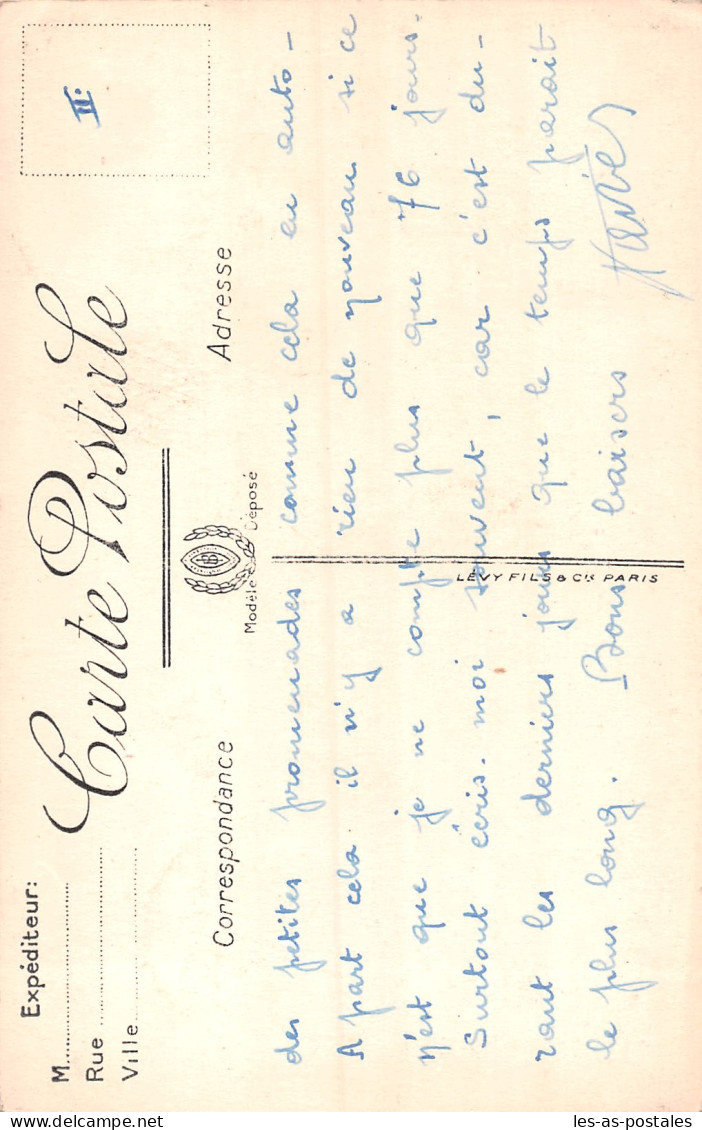 Expéditeur:
M
Rue
Ville
Carte Postale
II:
Correspondance
Adresse
Modèle Déposé
LÉVY FILS & Cie PARIS
des petites promenades comme cela en auto-
A part cela il n'y a rien de nouveau si ce
n'est que je ne compte plus que 76 jours.
Surtout écris-moi souvent, car c'est du-
rant les derniers jours que le temps parait
le plus long. Bons baisers
les-as-postales.com